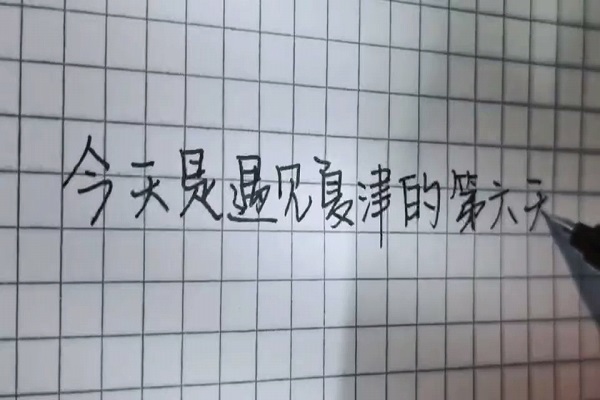 今天是遇见复津的第六天